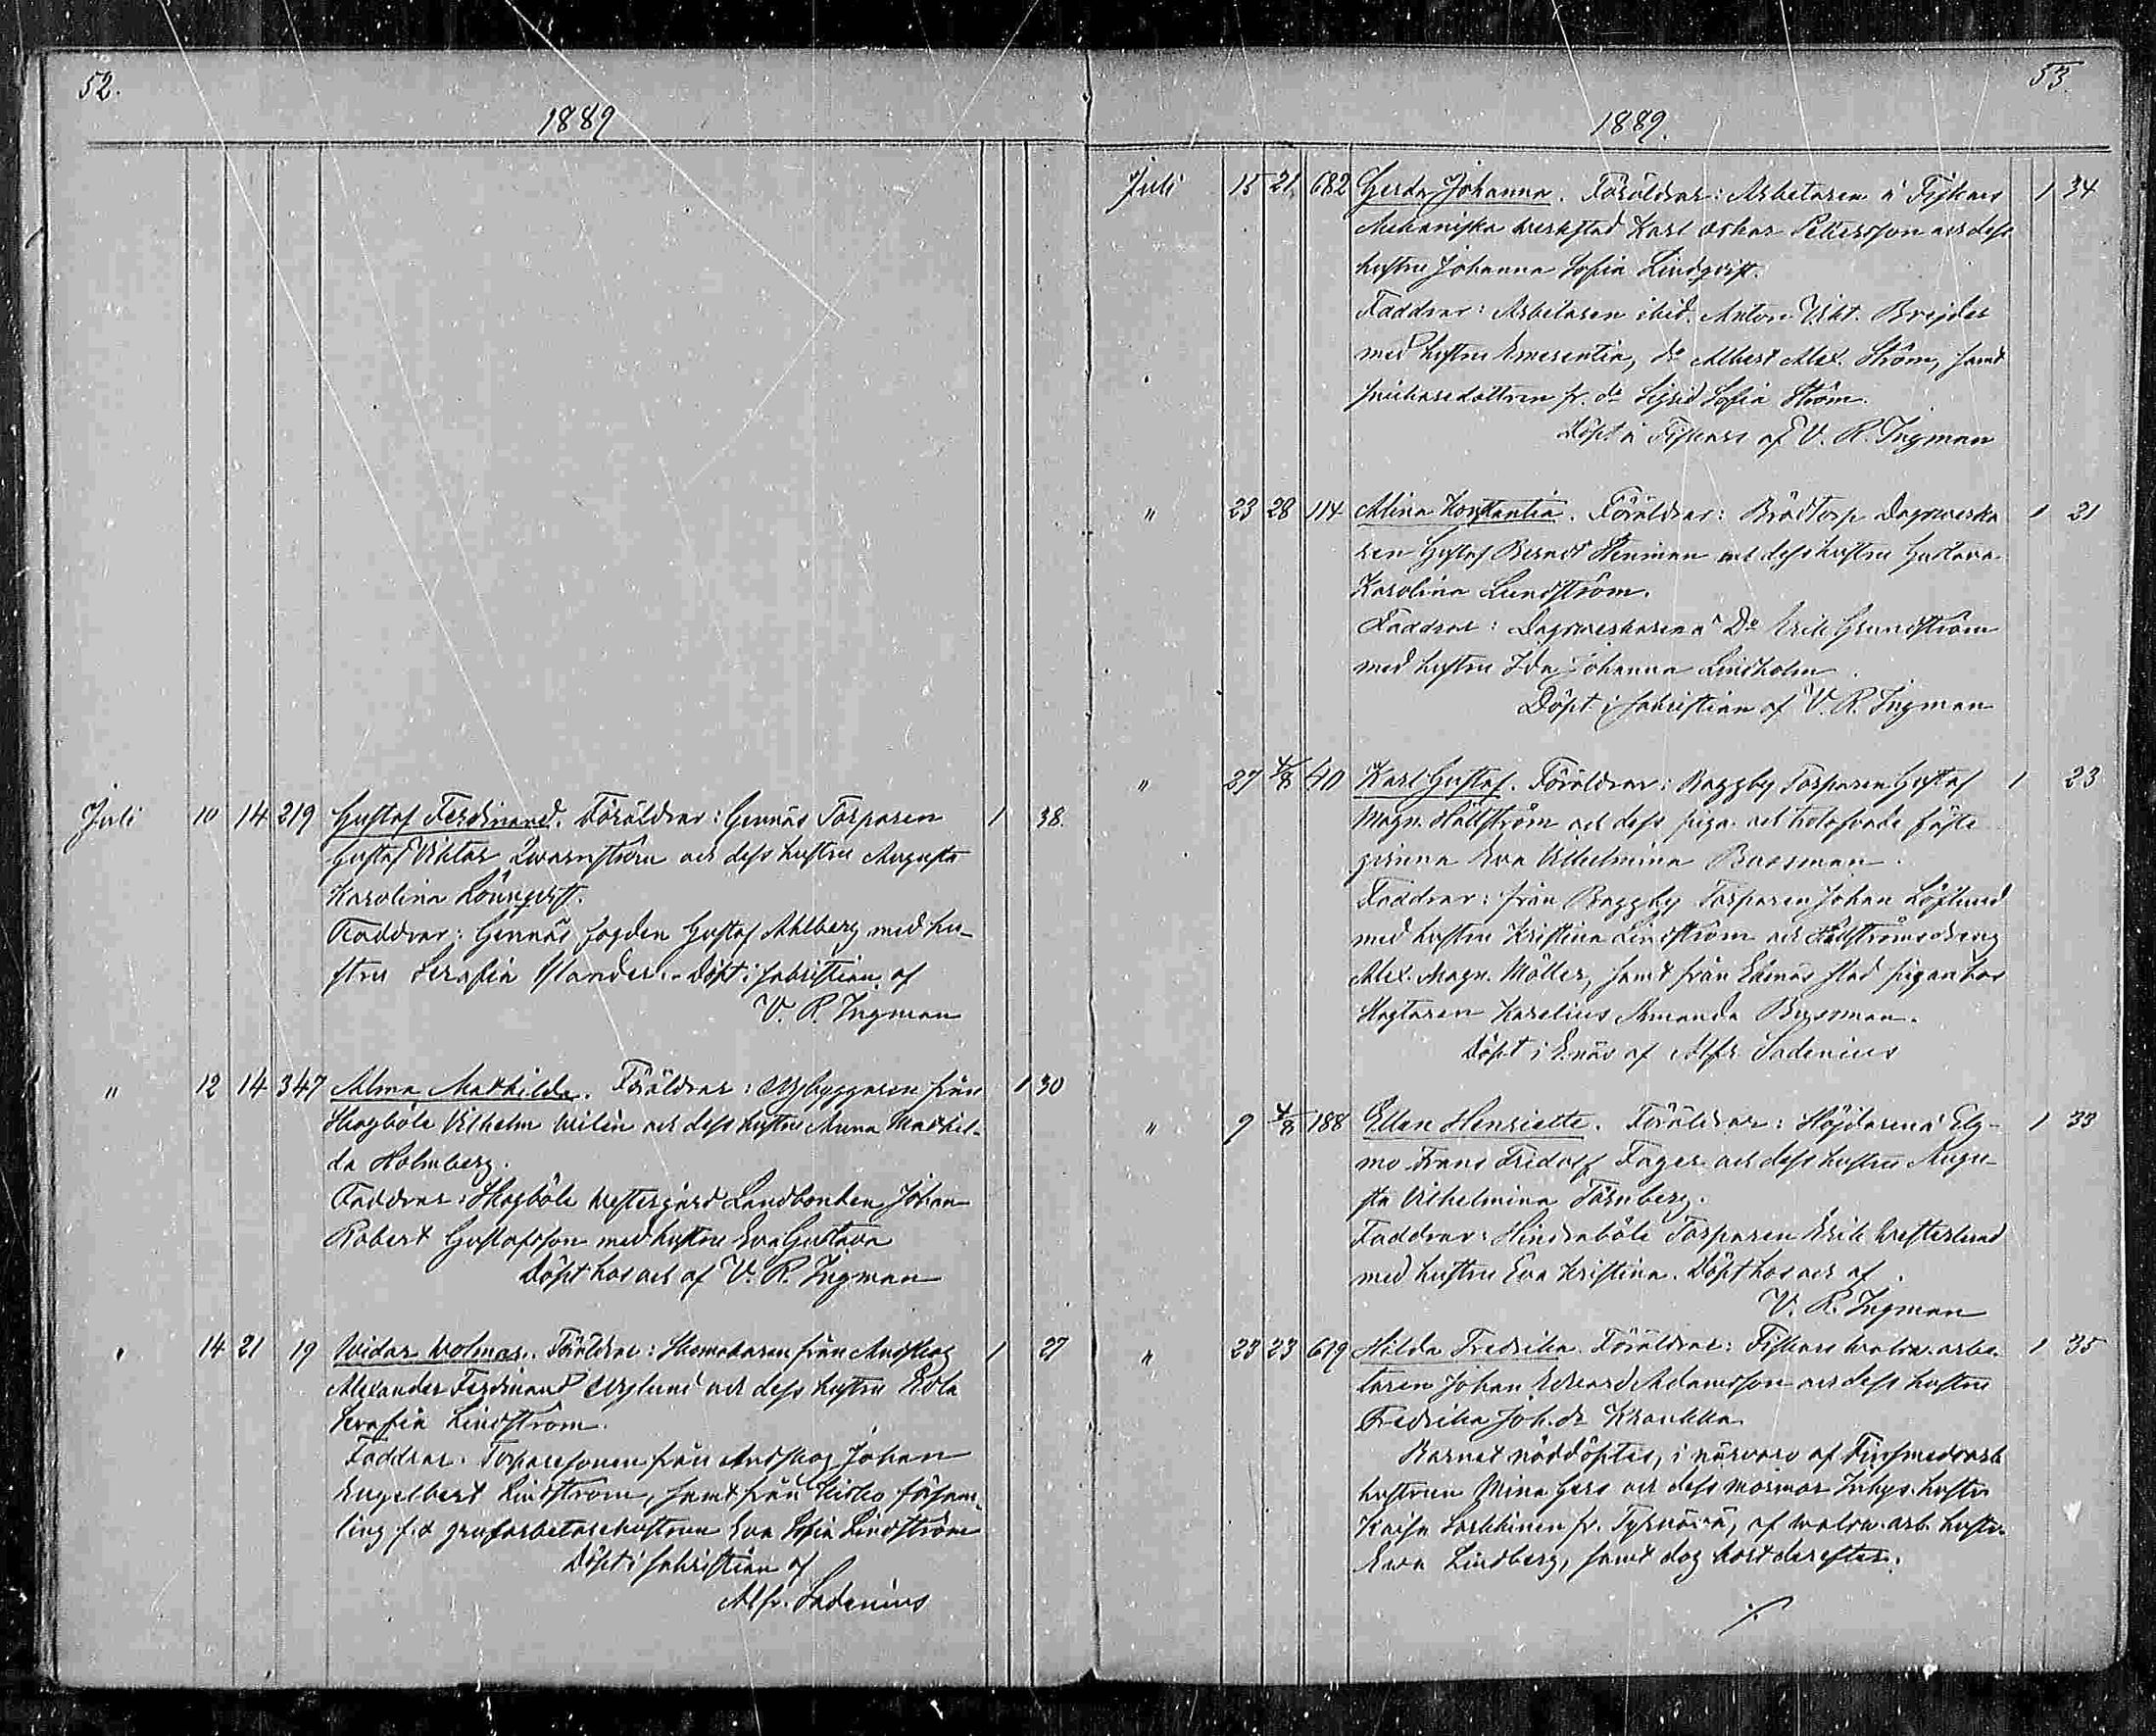 52.
1889
Juli 10 14 219 Gustaf Ferdinand. Föräldrar: Gennäs Torparen 1 38.
Gustaf Viktor Qvarnström och dess hustru Augusta
Karolina Lönnqvist.
Faddrar: Gennäs fogden Gustaf Ahlberg med hu-
stru Serafia Döpt i sakristian af
V. R. Ingman
" 12 14 347 Alma Mathilda. Föräldrar: Nybyggaren från 1 30
Skogböle Vilhelm Milén och dess hustru Anna Mathil-
da Holmberg.
Faddrar: Skogböle Westergård Landbonden Johan
Robert Gustafsson med hustru Eva Gustava
Döpt hos och af V. R. Ingman
" 14 21 19 Widar Wolmar. Föräldrar: Skomakaren från Andskog 1 27
Alexander Ferdinand Nyglund och dess hustru Edla
Serafia Lindström.
Faddrar. Torparesonen från Andskog Johan
Engelbert Lindström, samt från Kisko försam-
ling f.d. grufarbetarehustrun Eva Sofia Lindström
Döpt i sakristian af
Alfr. Sadenius
53.
1889.
Juli 15 21 682 Gerda Johanna. Föräldrar: Arbetaren å Fiskars 1 34
Mekaniska verkstad Karl Oskar Pettersson och dess
hustru Johanna Sofia Lindqvist.
Faddrar: Arbetaren ibid. Anton Vikt. Brejder
med hustru Emerentia, do Albert Alex. Ström, samt
snickaredottren fr. do Sigrid Sofia Ström.
Döpt å Fiskars af V. R. Ingman
" 23 28 114 Alina Konstantia. Föräldrar: Brödtorp Dagsverka 1 21
ren Gustaf Berndt Stenman och dess hustru Gustava
Karolina Lundström.
Faddrar: Dagsverkaren å Do Erik Grundström
med hustru Ida Johanna Lindholm.
Döpt i sakristian af V. R. Ingman
" 27 4/8 40 Karl Gustaf. Föräldrar: Baggby Torparen Gustaf 1 23
Magn. Hällström och dess piga och trolofvade fäste
qvinna Eva Vilhelmina Bursman.
Faddrar: från Baggby Torparen Johan Löflund
med hustru Kristina Lindström och Hällströms dreng
Alex. Magn. Möller, samt från Ekenäs stad pigan hos
Karelius Amanda Bursman.
Döpt i Ekenäs af Alfr. Sadenius
" 9 4/8 188 Ellen Henriette. Föräldrar: Höjdaren å Elg- 1 33
mo Frans Fridolf Fager och dess hustru Augu-
sta Vilhelmina Törnberg.
Faddrar: Hindraböle Torparen Erik Westerlund
med hustru Eva Kristina. Döpt hos och af
V. R. Ingman
" 23 23 619 Hilda Fredrika. Föräldrar: Fiskars valsv. arbe- 1 35
taren Johan Edvard Adamsson och dess hustru
Fredrika Joh. dr
Barnet nöddöptes, i närvaro af Finsmedsarb.
hustrun Mina Gers och dess mormor Inhys. hustr.
Kaisa fr. Tyrvää, af valsv. arb. hustr.
Eva Lindberg, samt dog kort derefter.